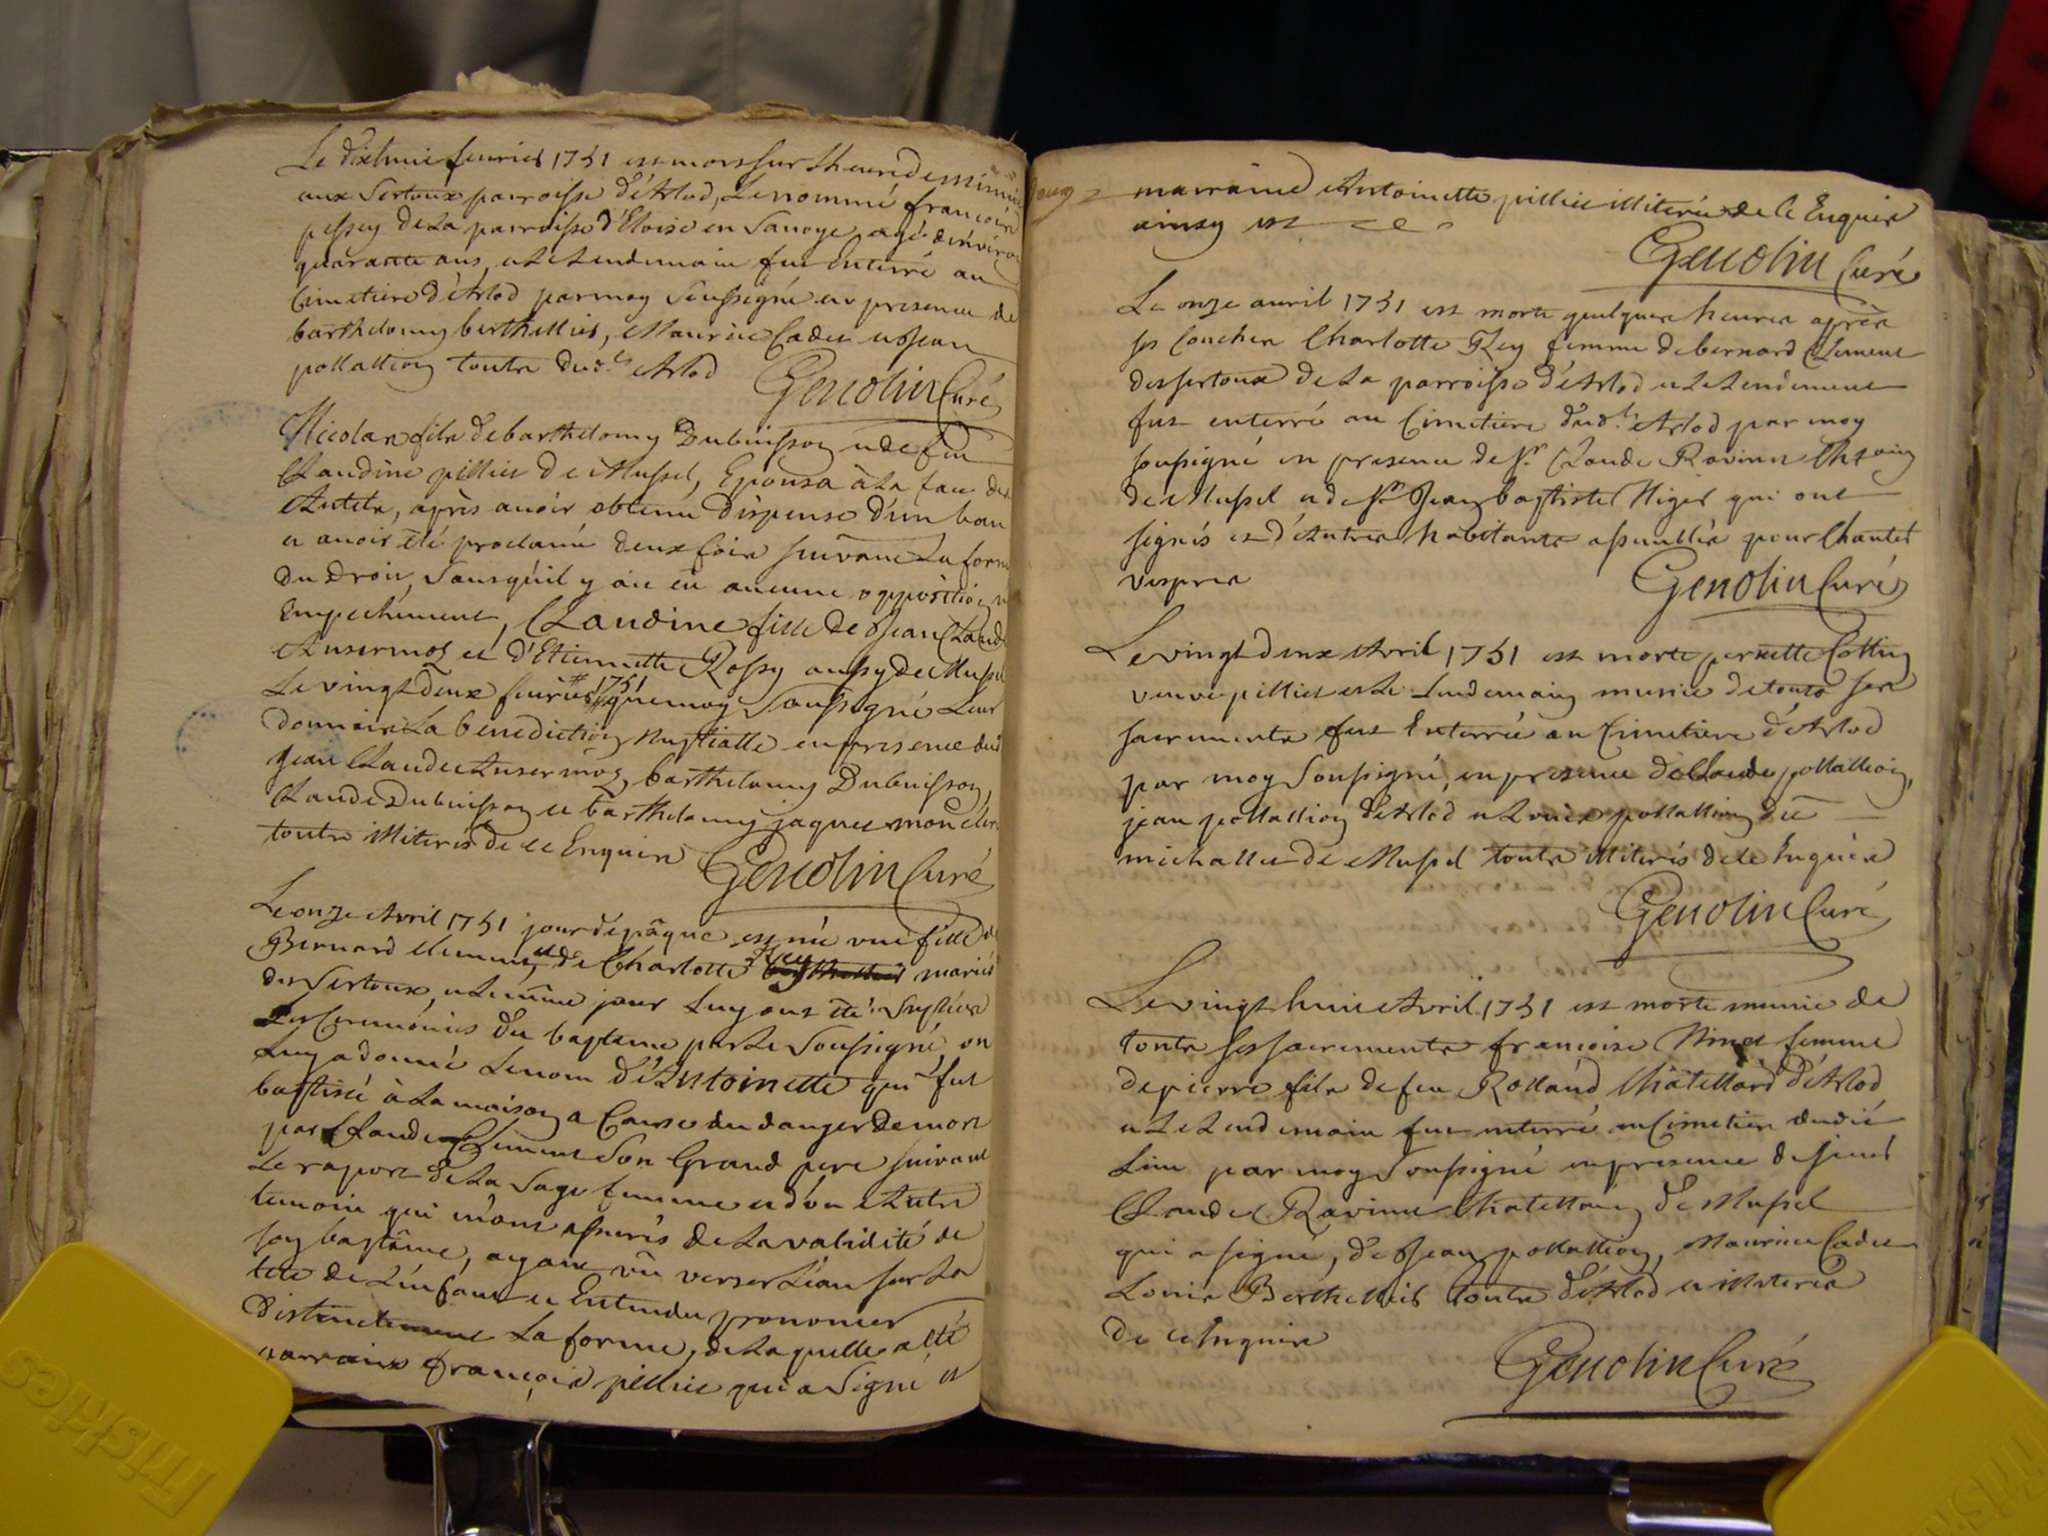 Le dixhuit feurier 1751 est mort sur Lheure de minui
aux Sertoux parroisse d'Arlod, Le nommé francois
pessey de La parroisse d'Eloise en Savoye agé denviron
quarante ans, et Le Lendemain fut Enterré au
Cimetiere d'Arlod par moy Soussigné en presence de
barthelemy berthellier, Maurice Cadet et Jean
pollallion toutes dud.t Arlod
Genolin Curé
Nicolas fils de barthelemy Dubuisson et de feu
Claudine pillier De Mussel, Epousa à La face des
Autels, après avoir obtenu Dispense d'un ban
et avoir été proclamé deux fois suivant La forme
du Droit, Sans qu'il y ait eû aucune opposition ni
Empechement, Claudine fille de Jean Claude
Ansermoz et d'Etiennette Rossy aussy de Mussel
Le vingt Deux feurier 1751 que moy Soussigné Leur
donnai La benediction Nuptialle en presence dud
Jean Claude Ansermoz, barthelemy Dubuisson,
Claude Dubuisson et barthelemy jaques
toutes illiterés de ce Enquis
Genolin Curé
Le onze Avril 1751 jour de pâque est née une fille de
Bernard Clement et de Charlotte Rey mariés
des Sertoux, et Le même jour Luy ont été Supléés
Les Ceremonies du baptême par Le Soussigné, on
Luy a donné Le nom d'Antoinette qui fut
baptisée à La maison a Cause du danger De mort
par Claude Clement Son Grand pere suivant
Le raport de La Sage femme et d'un Autre
temoin qui m'ont assurés de La validité de
son baptême, ayant vû verser L'eau sur La
tete de L'enfant et Entendu prononcer
Distinctement La forme, de La quelle a été
parrain françois pillier qui a Signé et
marraine Antoinette pillier illiterée de ce Enquise
ainsy est
Genolin Curé
Le onze avril 1751 est morte quelques heures après
ses Couches Charlotte Rey femme de bernard Clement
des sertoux de La parroisse d'Arlod et Le Lendemain
fut enterré au Cimetiere dud.t Arlod par moy
soussigné en presence de Sr Claude Ravinet
de Mussel et de Sr Jean baptiste Niger qui ont
signés et d'Autres habitants assemblés pour Chanter
vespres
Genolin Curé
Le vingt deux Avril 1751 est morte pernette Cottin
veuve pillier et Le Lendemain munie de touts ses
sacrements fut Enterrée au Cimetiere d'Arlod
par moy Soussigné, en presence de Claude pollallion,
jean pollallion d'Arlod et Louis pollallion dit
michallet de Mussel touts illiterés de ce Enquis
Genolin Curé
Le vingt huit Avril 1751 est morte munie de
touts ses sacrements françoise Ninet femme
de pierre fils de feu Rolland Châtellard d'Arlod
et Le Lendemain fut enterré au Cimetiere dudit
Lieu par moy Soussigné en presence de sieur
Claude Ravinet Chatellain de Mussel
qui a signé, de Jean pollallion, Maurice Cadet
Louis Berthellier touts d'Arlod et illiterés
de ce Enquis
Genolin Curé
Friskies
Friskies